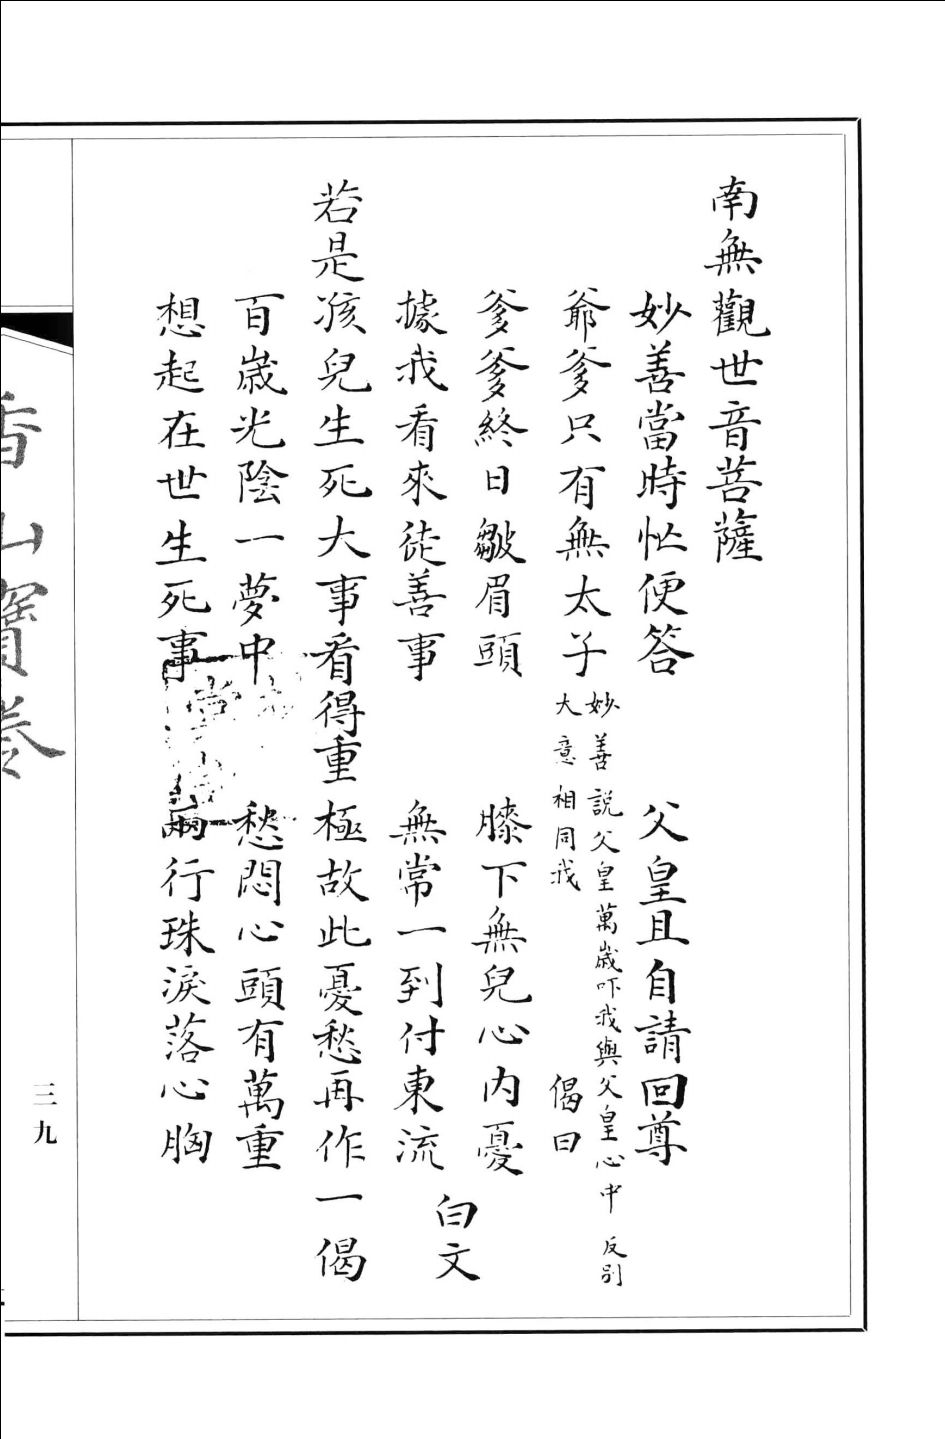 南無觀世音菩薩
妙善當時忙便答　父皇且自請回尊
爺爹只有無太子
妙善説父皇萬歲吓我與父皇心中反別
大意相同我
偈曰
爹爹終日皺眉頭　膝下無兒心内憂
據我看來徒善事　無常一到付東流
白文
若是孩兒生死大事看得重極故此憂愁再作一偈
百歲光陰一夢中　愁悶心頭有萬重
想起在世生死事　兩行珠淚落心胸
香山寶卷
三九